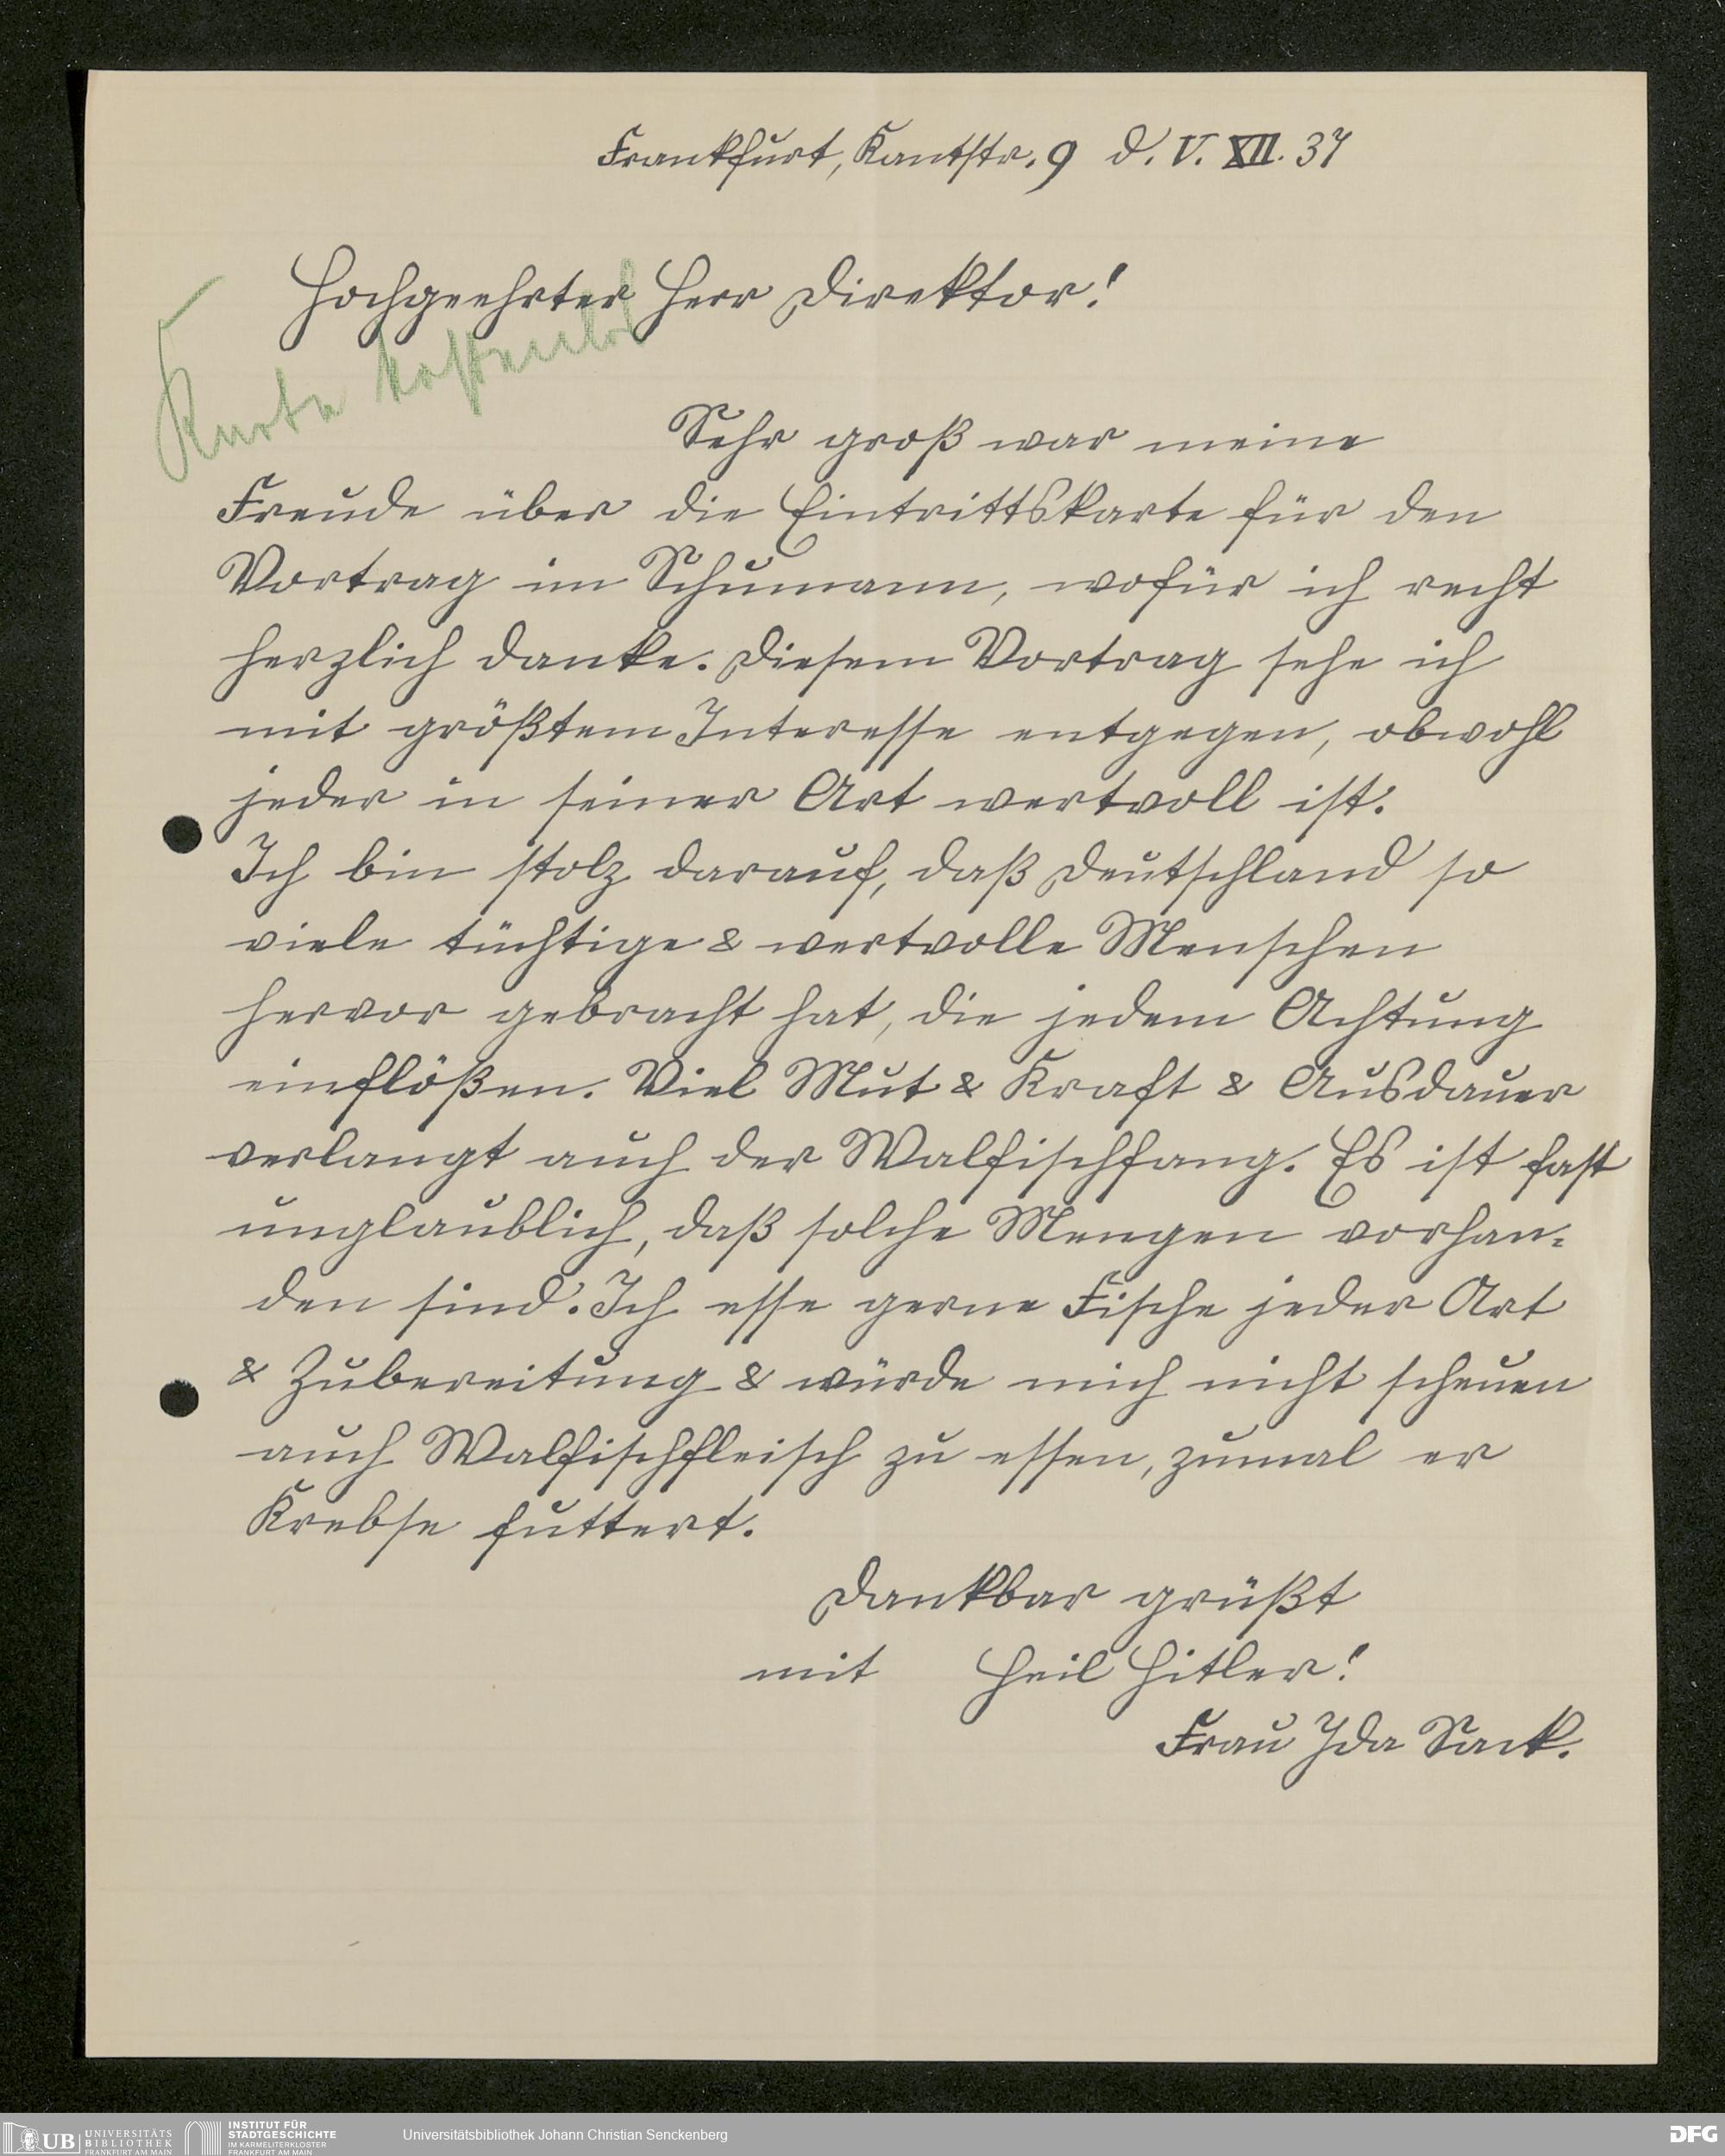 Frankfurt, Kantstr. 9 d. V. XII. 37
Hochgeehrter Herr Direktor!
Karte kostenlos
Sehr groß war meine
Freude über die Eintrittskarte für den
Vortrag im Schumann, wofür ich recht
herzlich danke. Diesem Vortrag sehe ich
mit größtem Interesse entgegen, obwohl
jeder in seiner Art wertvoll ist.
Ich bin stolz darauf, daß Deutschland so
viele tüchtige & wertvolle Menschen
hervor gebracht hat, die jedem Achtung
einflößen. Viel Mut & Kraft & Ausdauer
verlangt auch der Walfischfang. Es ist fast
unglaublich, daß solche Mengen vorhan=
den sind. Ich esse gerne Fische jeder Art
& Zubereitung & würde mich nicht scheuen
auch Walfischfleisch zu essen, zumal er
Krebse futtert.
Dankbar grüßt
mit Heil Hitler!
Frau Ida Sack.
UB UNIVERSITÄTS
BIBLIOTHEK
FRANKFURT AM MAIN
INSTITUT FÜR
STADTGESCHICHTE
IM KARMELITERKLOSTER
FRANKFURT AM MAIN
Universitätsbibliothek Johann Christian Senckenberg
DFG